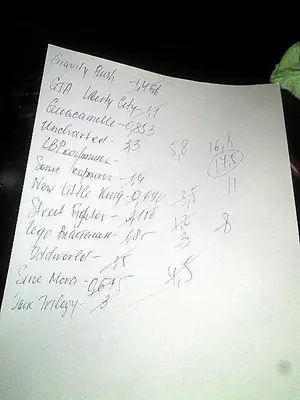 Gravity Rush - 1,4 Gb
GTA Liberty City - 1,1
Guacamelee - 0,853
Uncharted - 3,3
LBP картинг - 5,8 16,8
Sonic картинг - 1,4 17,5
New Little King - 0,690 3,5 11
Street Fighter - 2,110
Lego Batman - 1,85 8
Oddworld - 1,5 3
Sine Mora - 0,675 4,5
Jak Trilogy - 3